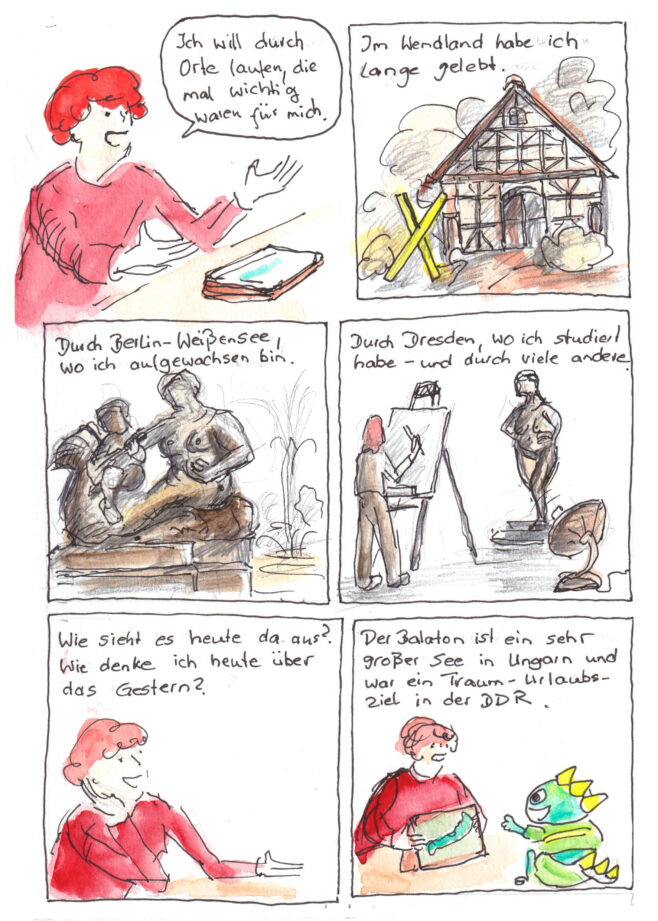 Ich will durch
Orte laufen, die
mal wichtig
waren für mich.
Im Wendland habe ich
lange gelebt.
Durch Berlin-Weißensee,
wo ich aufgewachsen bin.
Durch Dresden, wo ich studiert
habe - und durch viele andere.
Wie sieht es heute da aus?
Wie denke ich heute über
das Gestern?
Der Balaton ist ein sehr
großer See in Ungarn und
war ein Traum-Urlaubs-
ziel in der DDR.